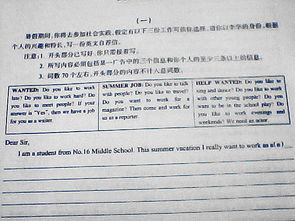 (一)
暑假期间,你将去参加社会实践,假定有以下三份工作可供你选择,请你以李华的身份,根据
个人的兴趣和特长,写一份英文自荐信。
注意:1. 开头部分已写好,你只需接着写。
2. 所写内容必须包括某一广告中的三个信息和你个人的至少三条以上的信息。
3. 词数 70 个左右,开头部分的内容不计入总词数。
WANTED: Do you like to
talk? Do you like to work hard? Do
you like to meet people? If your
answer is "Yes", then we have a job
for you as a waiter.
SUMMER JOB: Do you like to talk
with people? Do you like to travel?
Do you want to work for a
magazine? Then come and work for
us as a reporter.
HELP WANTED: Do you like to
sing and dance? Do you like to work
with young people? Do you want
to be in the school play? Do
you like to work evenings and
weekends? We need an actor.
Dear Sir,
I am a student from No.16 Middle School. This summer vacation I really want to work as a( n)